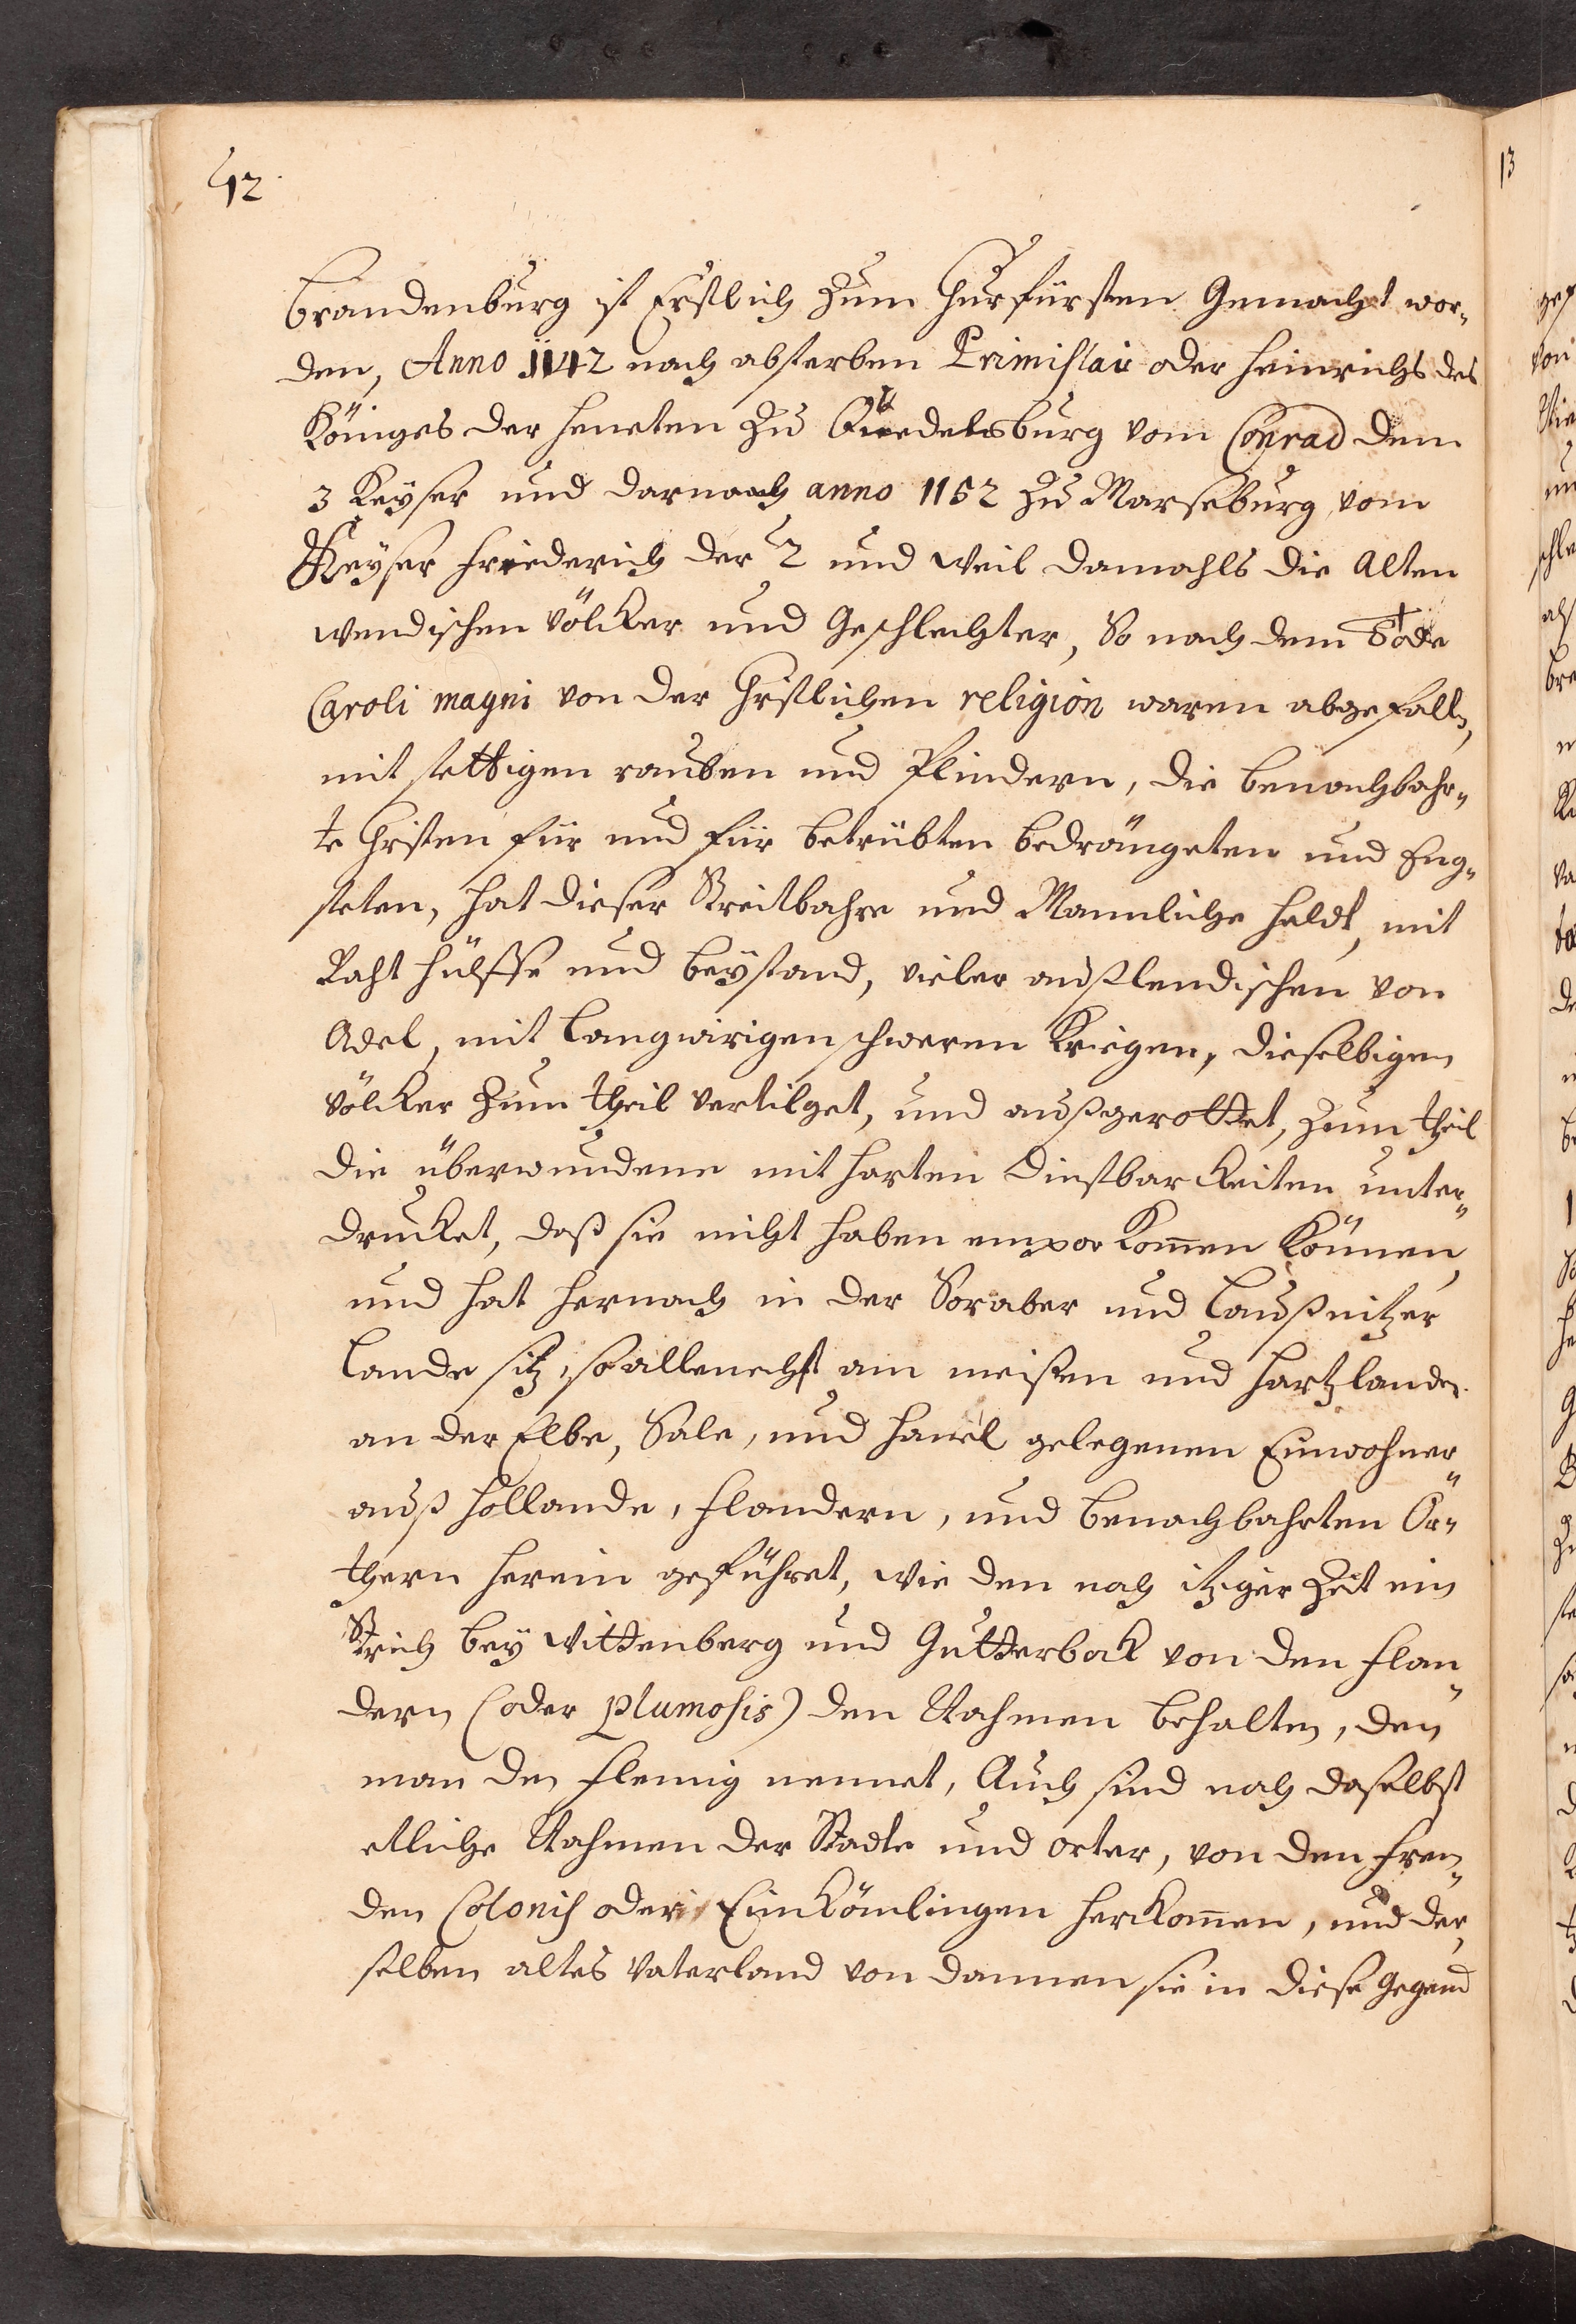 12
Brandenburg ist Erstlich zum Churfürsten Gemacht wor„
den, Anno 1142 nach absterben Primislai oder Heinrichs des
Königes der Heneten zu Quedelsburg vom Conrad dem
3 Keÿser und darnach anno 1152 zu Marseburg vom
Keÿser Friederich der 2 und weil damahls die Alten
wendischen völcker und Geschlechter, So nach dem Tode
Caroli magni von der Christlichen religion waren abgefalln,
mit stettigen rauben und Plindern, die benachbahr„
te Christen für und für betrübten bedrängeten und Eng„
steten, hat dieser Streitbahre und Mannliche Heldt, mit
Raht hülffe und beÿstand, vieler außlendischen von
Adel, mit langwirigen schweren Kriegen, dieselbigen
völcker zum theil vertilget, und außgerottet, zum theil
die überwundene mit harten Dinstbarkeiten unter„
drucket, daß sie nicht haben empor kom̄en können,
und hat hernach in der Soraber und Laußnitzer
Lande sitz, so allenechst am meißen und Hartzlande
an der Elbe, Sale, und Havel gelegenen Einwohner
auß Hollande, Flandern, und benachbahrten Ör„
thern herein geführet, wie den noch itziger Zeit ein
Strich beÿ Wittenberg und Gutterbock von den Flan„
dern (oder Plumosis) den Nahmen behalten, den
man den Flemig nennet, Auch sind noch daselbst
etliche Nahmen der Stadte und orter, von den frem„
den Colonis oder Einkömlingen herkom̄en, und der„
selben altes Vaterland von dannen sie in diese Gegend
13